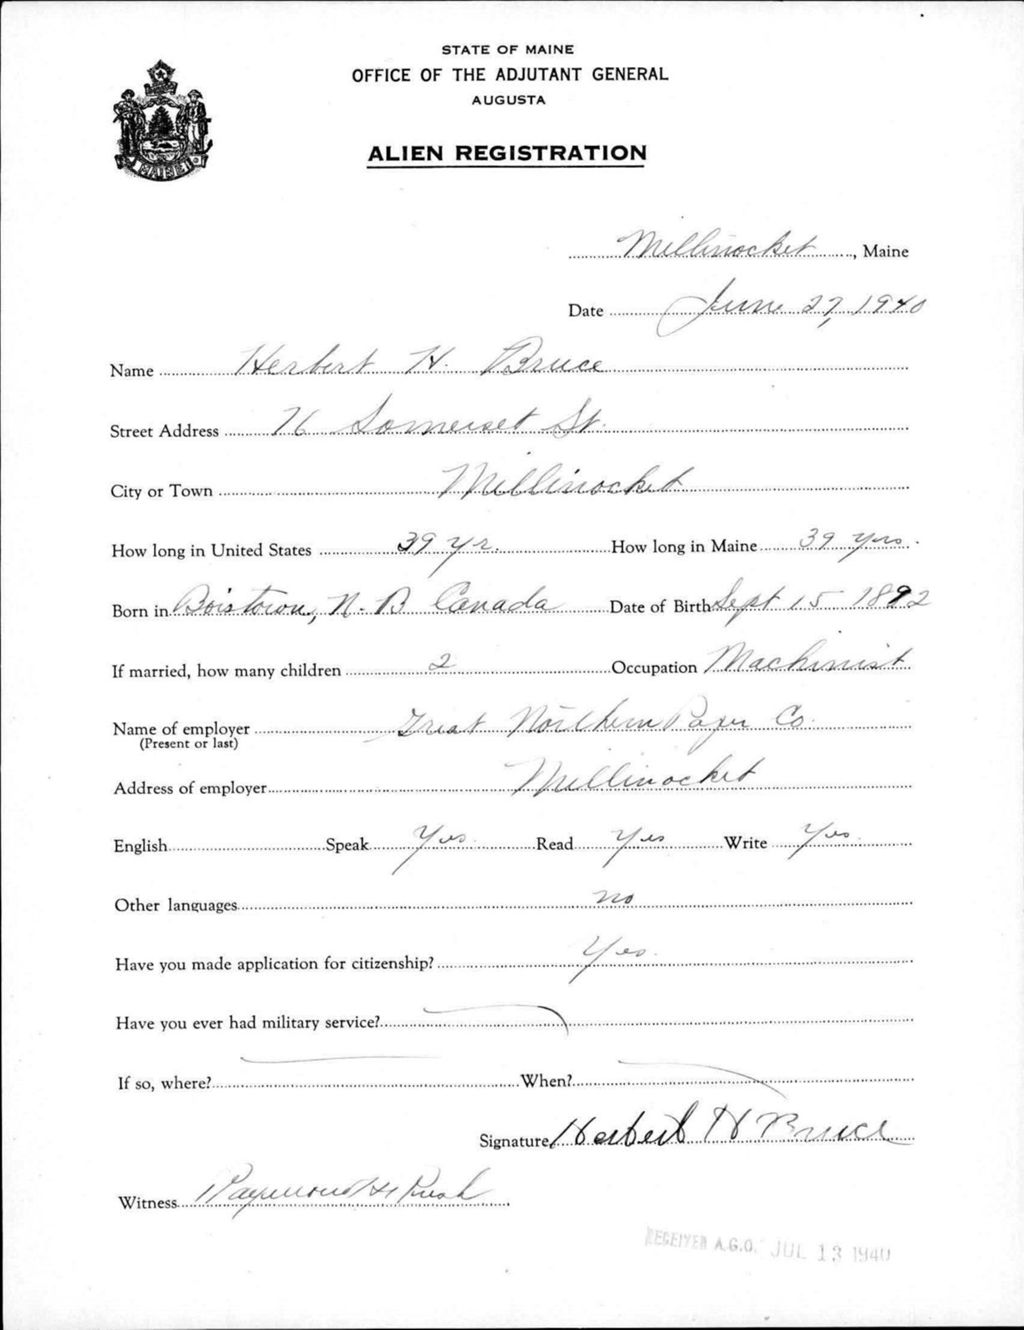 STATE OF MAINE
OFFICE OF THE ADJUTANT GENERAL
AUGUSTA
ALIEN REGISTRATION
MAINE
Millinocket, Maine
Date June 27, 1940
Name Herbert H. Bruce
Street Address 76 Somerset St.
City or Town Millinocket
How long in United States 39 yr. How long in Maine 39 yrs.
Born in Boistown, N.B Canada Date of Birth Sept 15 1892
If married, how many children 2 Occupation Machinist
Name of employer Great Northern Paper Co.
(Present or last)
Address of employer Millinocket
English Speak Yes. Read Yes Write Yes
Other languages no
Have you made application for citizenship? Yes.
Have you ever had military service?
If so, where? When?
Signature Herbert H Bruce
Witness Raymond H Rush
RECEIVED A.G.O. JUL 13 1940